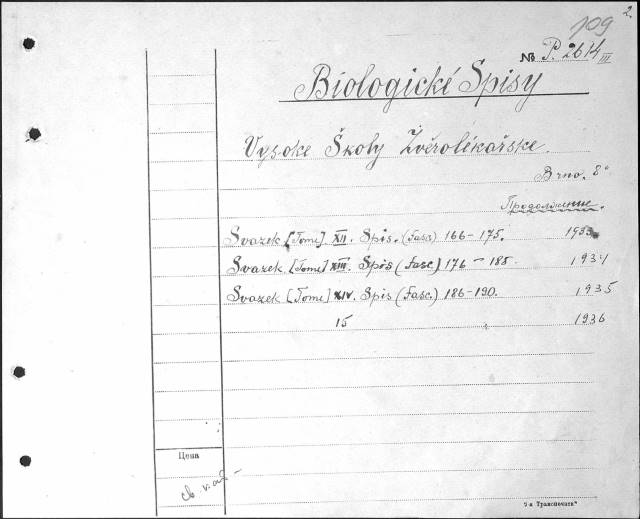 2.
109
№ P. 2614 III
Biologické Spisy
Vysoke Školy Zvěrolékařske.
Brno. 8°
Продолжение.
Svazek [Tome] XII. Spis. (Fasc) 166-175. 1933
Svazek [Tome] XIII. Spis (Fasc.) 176-185. 1934
Svazek [Tome] XIV. Spis (Fasc.) 186-190. 1935
15 1936
Цена
7-я Транспечать